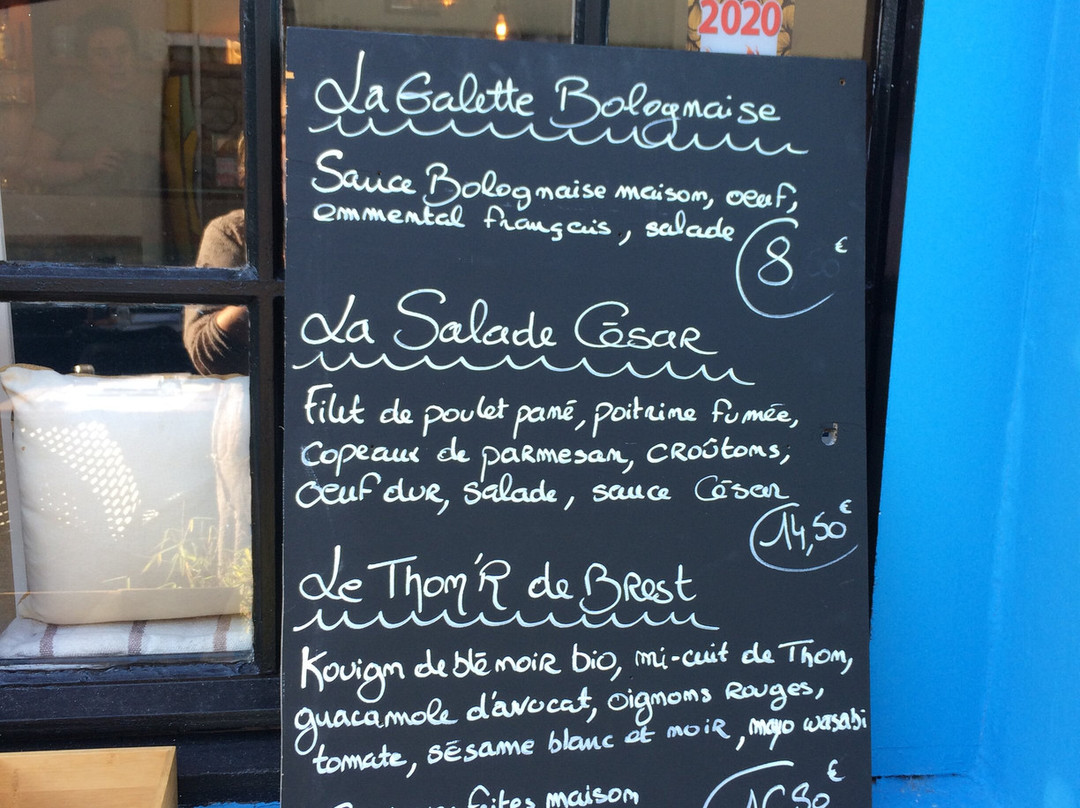 2020
La Galette Bolognaise
Sauce Bolognaise maison, oeuf,
emmental français, salade
8 €
La Salade César
Filet de poulet pané, poitrine fumée,
copeaux de parmesan, croûtons,
oeuf dur, salade, sauce César
14,50 €
Le Thom'R de Brest
Kouign de blé noir bio, mi-cuit de Thom,
guacamole d'avocat, oignons Rouges,
tomate, sésame blanc et noir, mayo wasabi
faites maison
€